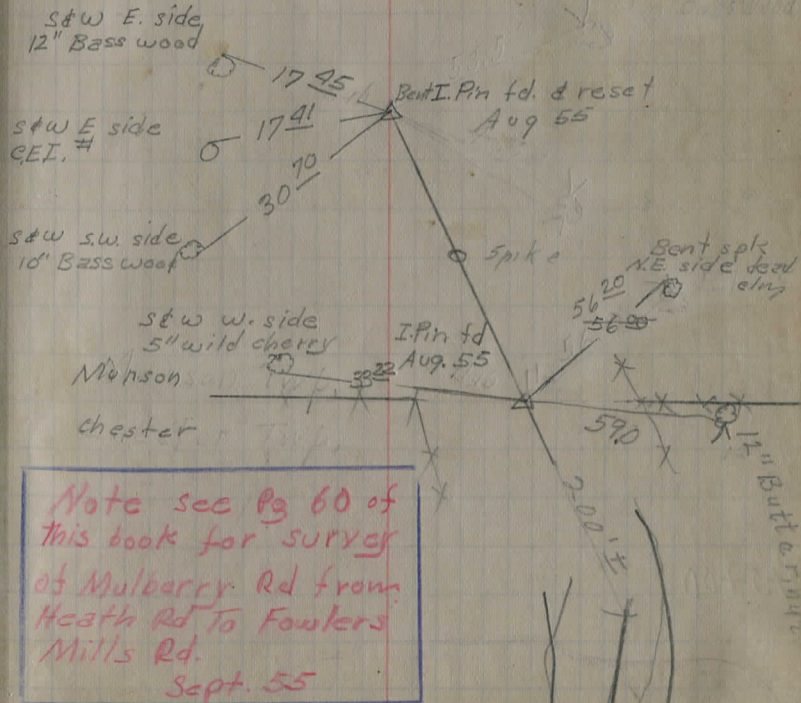 S&W E. side
12" Bass wood
17 45
Bent I. Pin fd. & reset
Aug 55
S&W E side
C.E.I. #
17 41
30 70
S&W S.W. side
10" Bass wood
Spike
Bent spk
N.E. side dead
elm
56 20
56 00
S&W W. side
5" wild cherry
I. Pin fd
Aug. 55
Munson
33 22
Chester
59.0
12" Butternut
200' ±
Note see Pg 60 of
this book for survey
of Mulberry Rd from
Heath Rd To Fowlers
Mills Rd.
Sept. 55